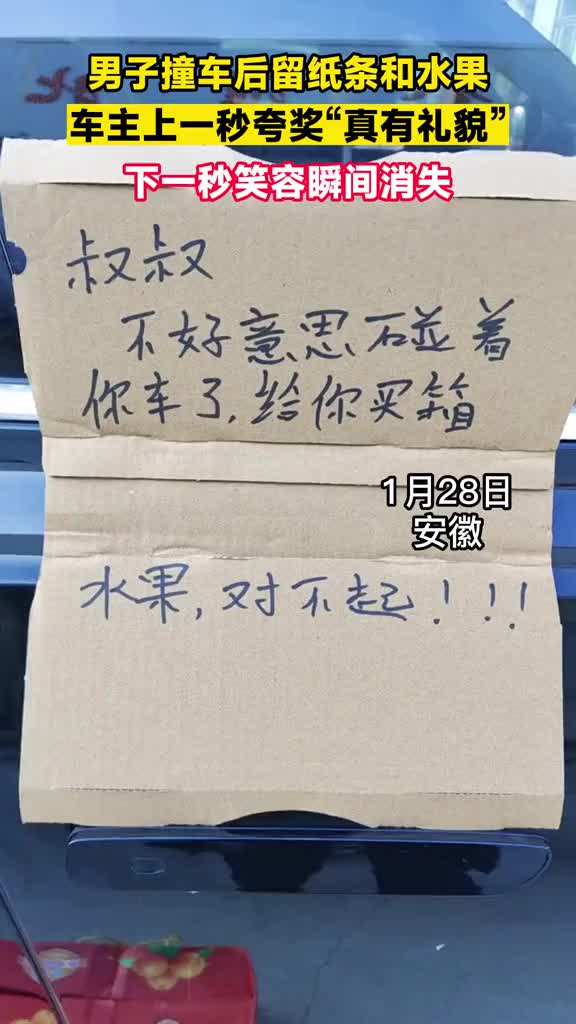 男子撞车后留纸条和水果
车主上一秒夸奖“真有礼貌”
下一秒笑容瞬间消失
叔叔
不好意思碰着
你车了,给你买箱
1月28日
安徽
水果,对不起!!!